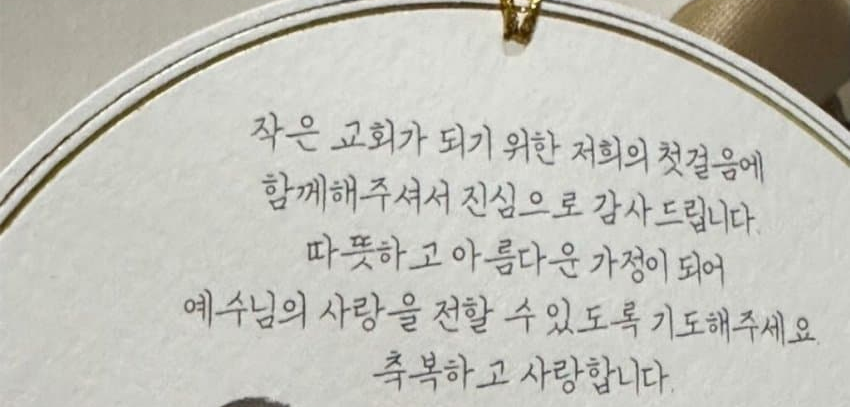 작은 교회가 되기 위한 저희의 첫걸음에
함께해주셔서 진심으로 감사드립니다.
따뜻하고 아름다운 가정이 되어
예수님의 사랑을 전할 수 있도록 기도해주세요.
축복하고 사랑합니다.